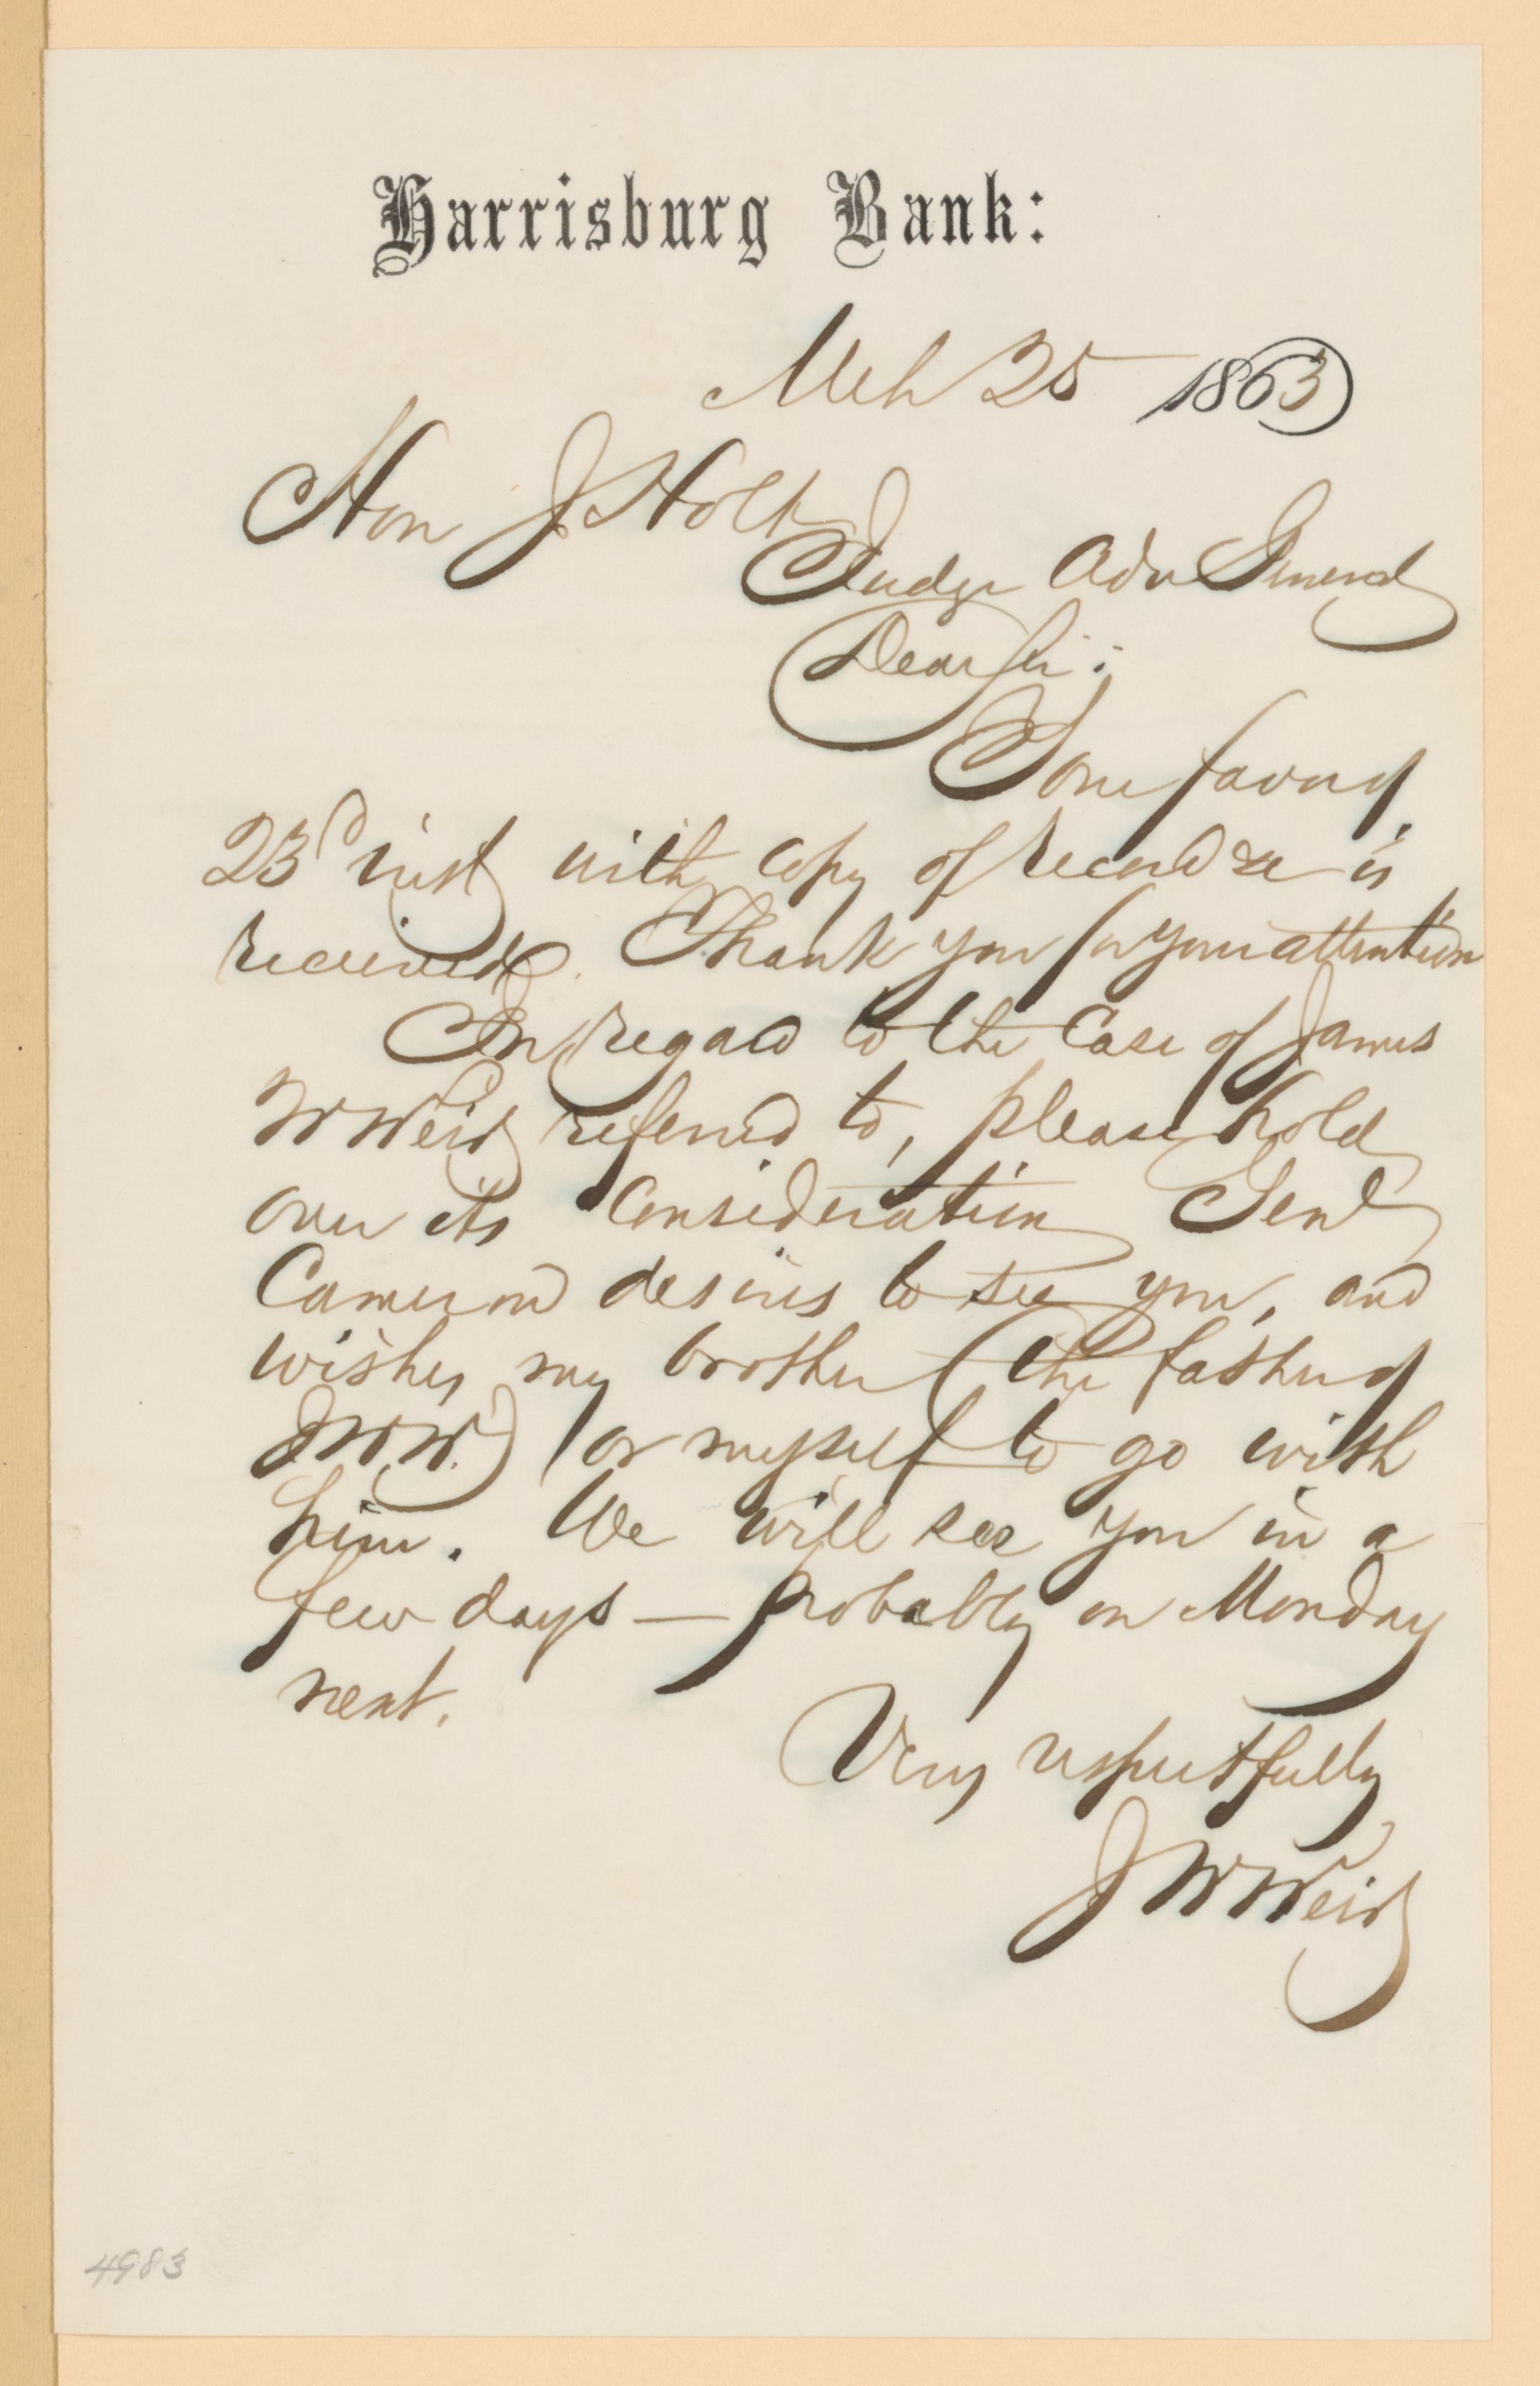 Harrisburg Bank:
Mch 25 1863
Hon J Holt
Judge Adv General
Dear Sir:
Your favor of
23d inst with copy of record &c is
received. Thank you for your attention
In regard to the case of James
W Weir referred to, please hold
over its consideration Genl
Cameron desires to see you, and
wishes my brother (the father of
J W W.) or myself to go with
him. We will see you in a
few days — probably on Monday
next.
Very respectfully
J W Weir
4983